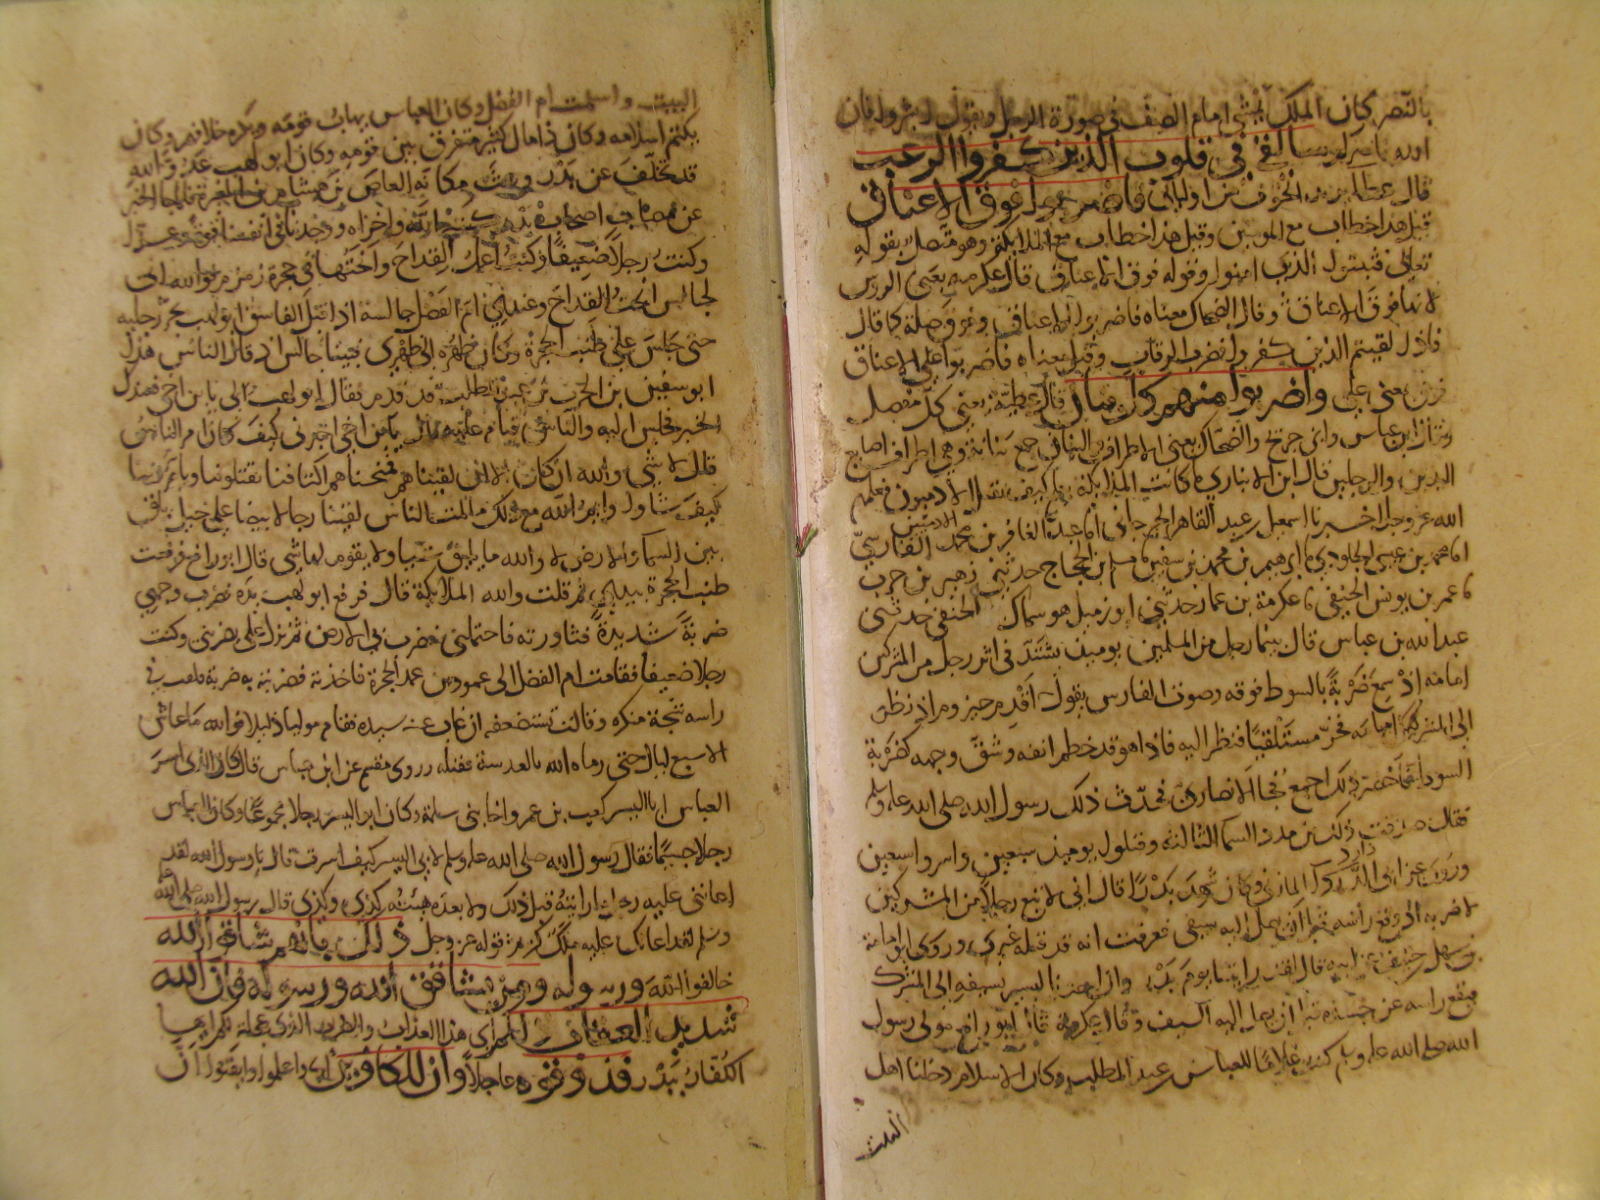 بالنصر كان الملك يمشي امام الصف في صورة الرجل ويقول ابشروا فان
الله ناصركم سالقي في قلوب الذين كفروا الرعب
قال عطا يريد الخوف من اوليائي فاضربوا فوق الاعناق
قيل هذا خطاب مع المومنين وقيل هذا خطاب مع الملايكة وهو متصل بقوله
تعالى فثبتوا الذين امنوا وقوله فوق الاعناق قال عكرمة يعنى الروس
لانها فوق الاعناق وقال الضحاك معناه فاضربوا الاعناق وفوق صلة كما قال
فاذا لقيتم الذين كفروا فضرب الرقاب وقيل معناه فاضربوا على الاعناق
فوق بمعنى على واضربوا منهم كل بنان قال عطية يعني كل مفصل
وقال ابن عباس وابن جريج والضحاك يعنى الاطراف والبنان جمع بنانة وهي اطراف اصابع
اليدين والرجلين قال ابن الانباري كانت الملايكة لا تعلم كيف تقتل الادميين فعلمهم
الله عز وجل اخبرنا اسمعيل بن عبد القاهر الجرجاني انا عبد الغافر بن محمد الفارسي
انا محمد بن عيسى الجلودي نا ابرهيم بن محمد بن سفين نا مسلم بن الحجاج حدثنى زهير بن حرب
نا عمر بن يونس الحنفي نا عكرمة بن عمار حدثني ابو زميل هو سماك الحنفي حدثنى
عبد الله بن عباس قال بينما رجل من المسلمين يوميذ يشتد في اثر رجل من المشركين
امامه اذ سمع ضربة بالسوط فوقه وصوت الفارس يقول اقدم حيزوم اذ نظر
الى المشرك امامه فخر مستلقيا فنظر اليه فاذا هو قد خطم انفه وشق وجهه كضربة
السوط فاخضر ذلك اجمع فجا الانصاري فحدث ذلك رسول الله صلى الله عليه وسلم
فقال صدقت ذلك من مدد السما الثالثة وقتلوا يوميذ سبعين واسروا سبعين
وروي عن ابي داود المازني وكان شهد بدرا قال اني لاتبع رجلا من المشركين
لاضربه اذ وقع راسه قبل ان يصل اليه سيفى فعرفت انه قد قتله غيرى وروى ابو امامة
بن سهل بن حنيف عن ابيه قال لقد رايتنا يوم بدر وان احدنا ليشير بسيفه الى المشرك
فيقع راسه عن جسده قبل ان يصل اليه السيف وقال عكرمة قال ابو رافع مولى رسول
الله صلى الله عليه وسلم كنت غلاما للعباس بن عبد المطلب وكان الاسلام دخلنا اهل
البيت
البيت واسلمت ام الفضل وكان العباس يهاب قومه ويكره خلافهم وكان
يكتم اسلامه وكان ذا مال كثير متفرق بين قومه وكان ابو لهب عدو الله
قد تخلف عن بدر وبعث مكانه العاص بن هشام بن المغيرة فلما جا الخبر
عن مصاب اصحاب بدر كبته الله واخزاه ووجدنا في انفسنا قوة وعزا
وكنت رجلا ضعيفا وكنت اعمل القداح وانحتها في حجرة زمزم فوالله اني
لجالس انحت القداح وعندي ام الفضل جالسة اذ اقبل الفاسق ابو لهب يجر رجليه
حتى جلس على طنب الحجرة وكان ظهره الى ظهري فبينا هو جالس اذ قال الناس هذا
ابو سفين بن الحرث بن عبد المطلب قد قدم فقال ابو لهب الي يابن اخي فعندك
الخبر فجلس اليه والناس قيام عليه قال يابن اخي اخبرنى كيف كان امر الناس
قال لا شي والله ان كان الا ان لقيناهم فمنحناهم اكتافنا يقتلوننا وياسروننا
كيف شاوا وايم الله مع ذلك ما لمت الناس لقينا رجالا بيضا على خيل بلق
بين السما والارض لا والله ما تليق شيا ولا يقوم لها شي قال ابو رافع فرفعت
طنب الحجرة بيدي ثم قلت والله الملايكة قال فرفع ابو لهب يده فضرب وجهي
ضربة شديدة فثاورته فاحتملنى فضرب بي الارض ثم نزل على يضربنى وكنت
رجلا ضعيفا فقامت ام الفضل الى عمود من عمد الحجرة فاخذته فضربته به ضربة فلعت في
راسه شجة منكرة وقالت تستضعفه ان غاب عنه سيده فقام موليا ذليلا فوالله ما عاش
الا سبع ليال حتى رماه الله بالعدسة فقتله وروى مقسم عن ابن عباس قال كان الذي اسر
العباس ابا اليسر كعب بن عمرو اخا بنى سلمة وكان ابو اليسر رجلا مجموعا وكان العباس
رجلا جسيما فقال رسول الله صلى الله عليه وسلم لابي اليسر كيف اسرت قال يا رسول الله لقد
اعاننى عليه رجل ما رايته قبل ذلك ولا بعده هيئته كذى وكذى قال رسول الله صلى الله عليه
وسلم لقد اعانك عليه ملك كريم قوله عز وجل ذلك بانهم شاقوا الله
خالفوا الله ورسوله ومن يشاقق الله ورسوله فان الله
شديد العقاب ذلكم اي هذا العذاب والضرب الذي عجلته لكم ايها
الكفار ببدر فذوقوه عاجلا وان للكافرين اي واعلموا وايقنوا ان